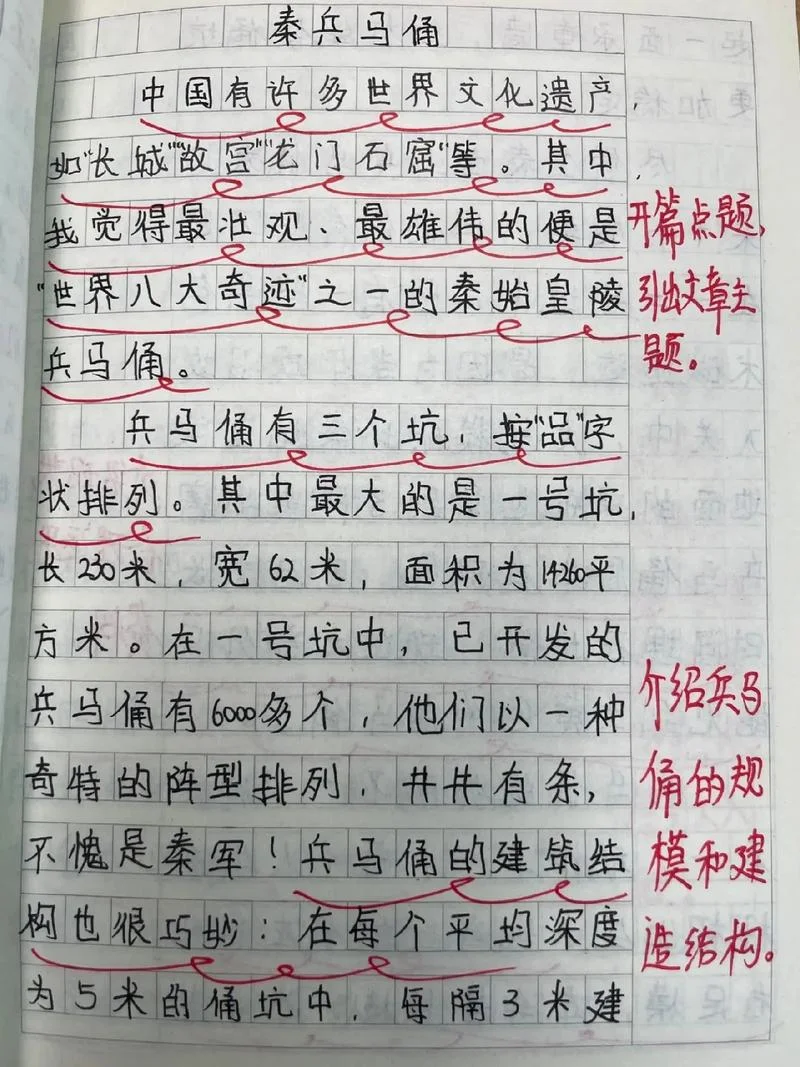 秦兵马俑
中国有许多世界文化遗产,
如"长城""故宫""龙门石窟"等。其中,
我觉得最壮观、最雄伟的便是
"世界八大奇迹"之一的秦始皇陵
兵马俑。
兵马俑有三个坑,按"品"字
状排列。其中最大的是一号坑,
长230米,宽62米,面积为14260平
方米。在一号坑中,已开发的
兵马俑有6000多个,他们以一种
奇特的阵型排列,井井有条,
不愧是秦军!兵马俑的建筑结
构也很巧妙:在每个平均深度
为5米的俑坑中,每隔3米建
开篇点题,
引出文章主
题。
介绍兵马
俑的规
模和建
造结构。